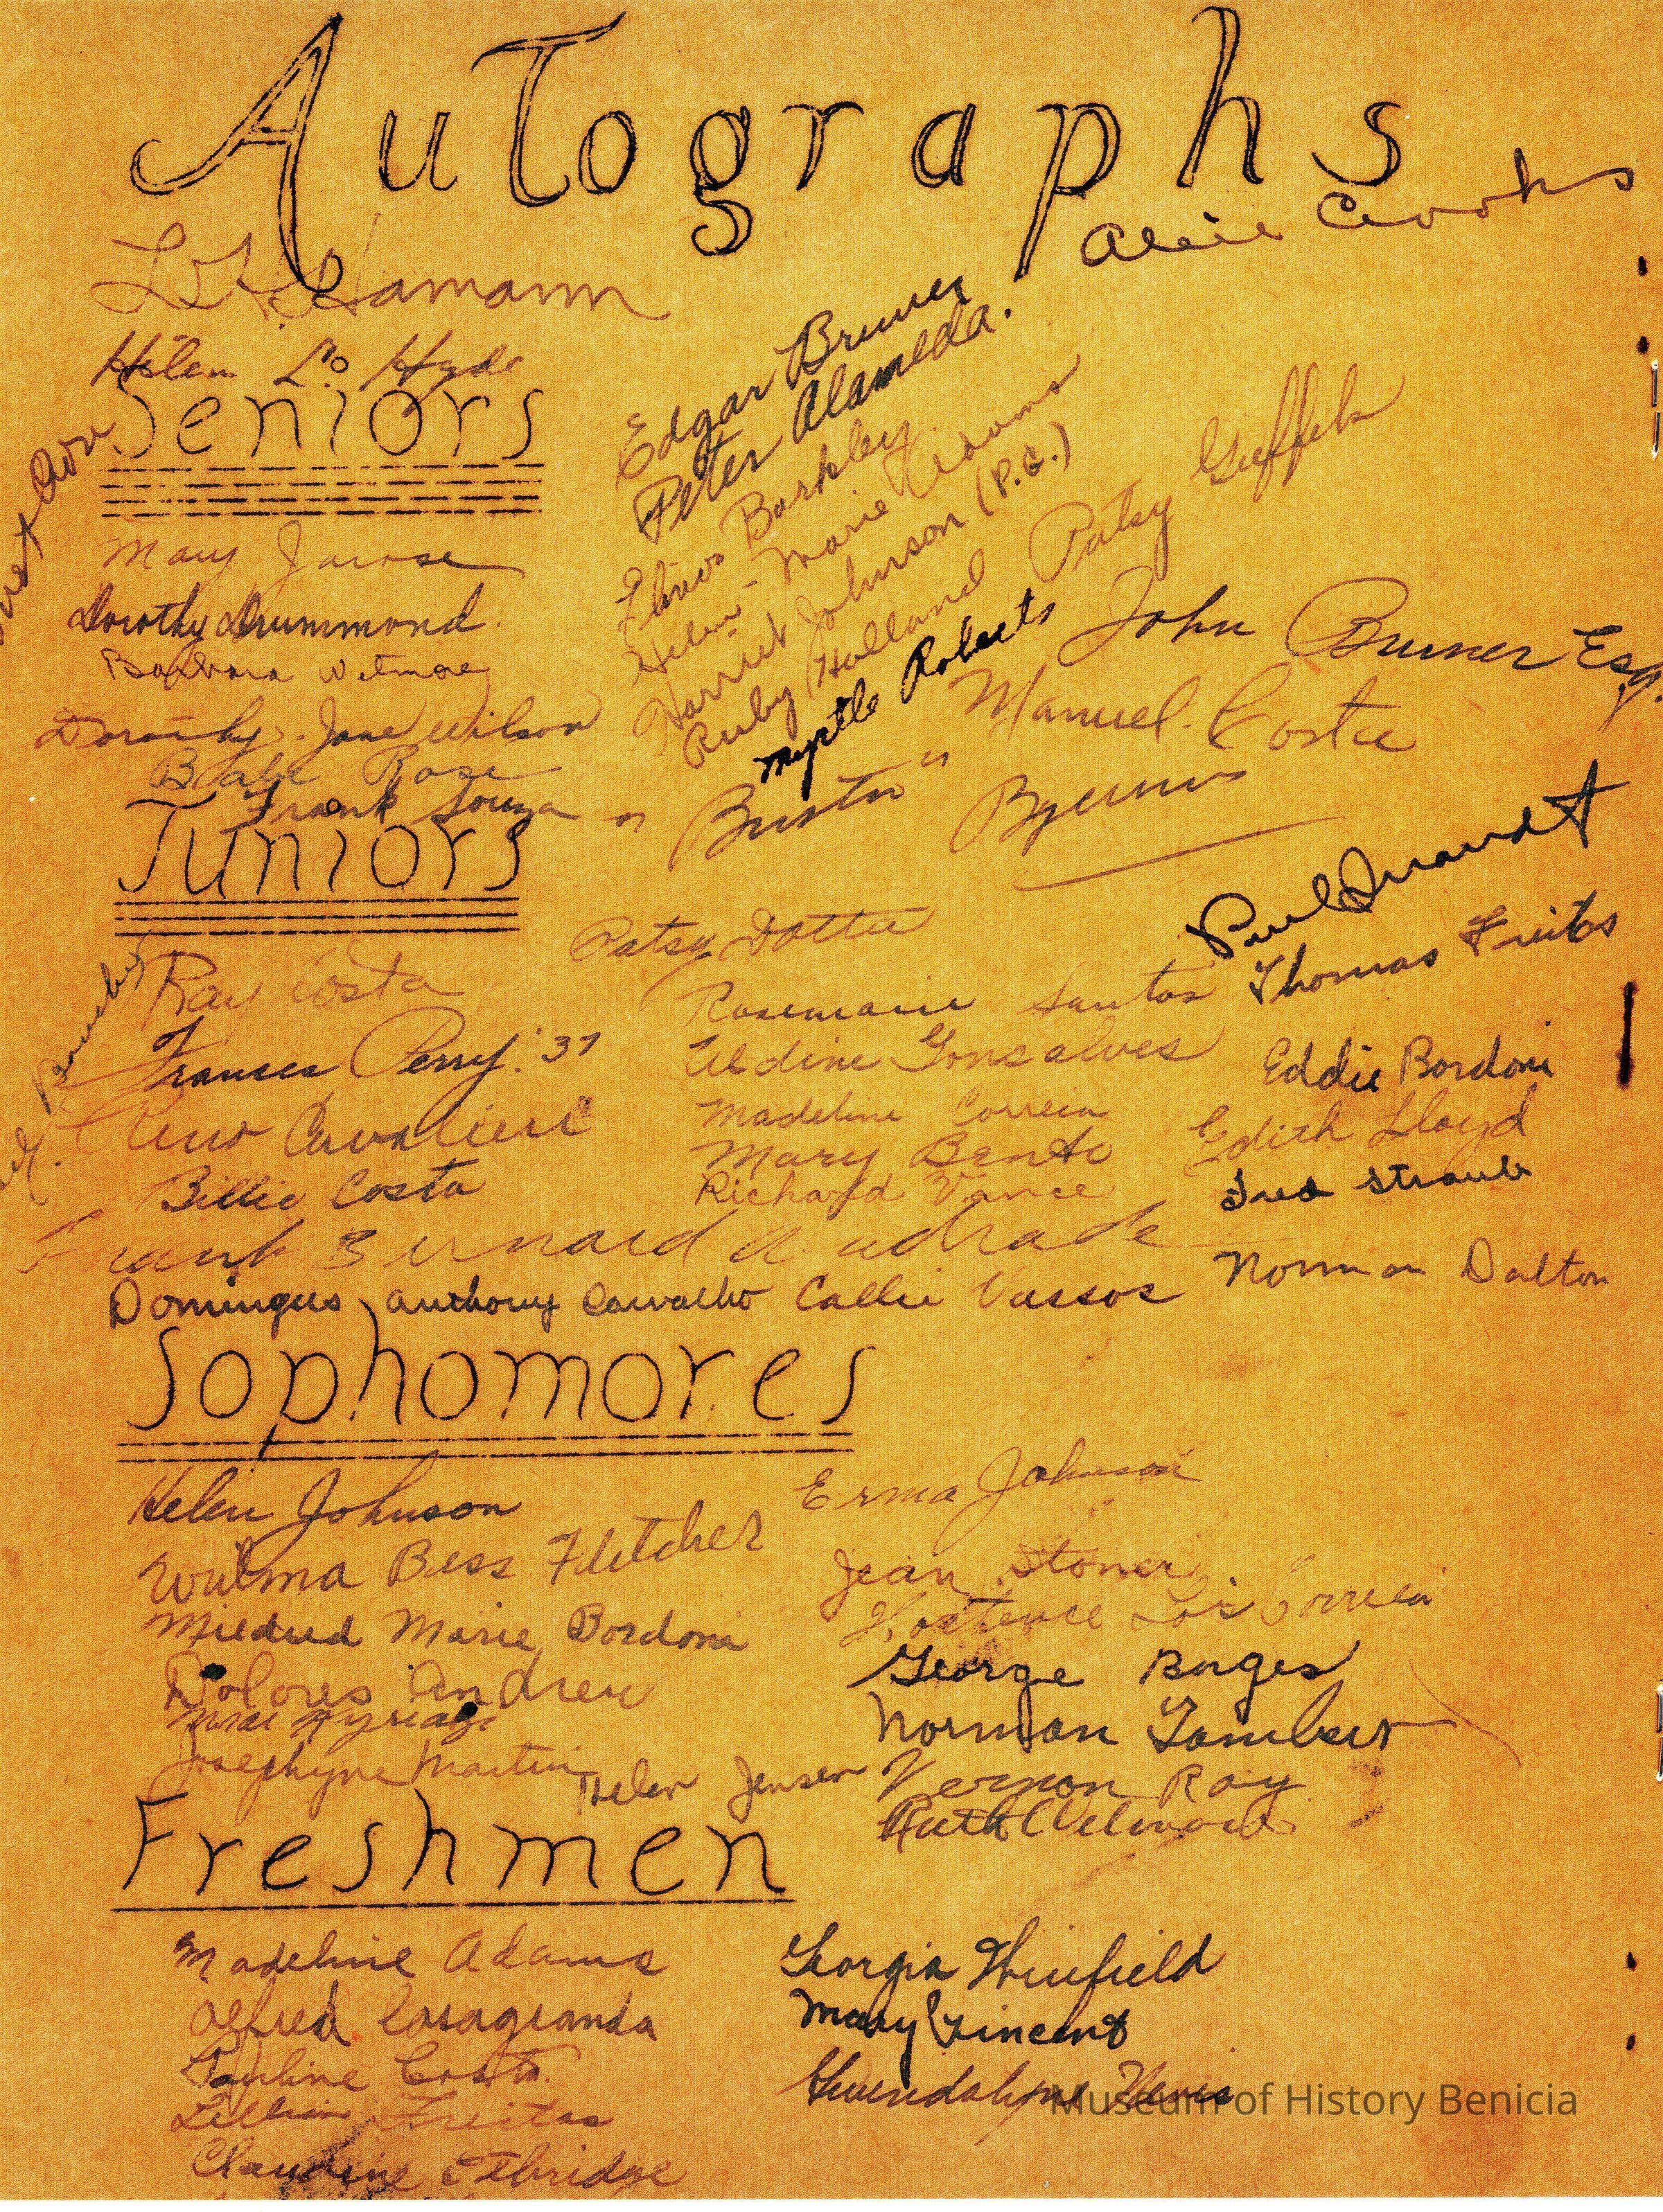 Autographs
Alcie Crooks
L. H. Hamann
Helen L. Hyde
Seniors
Edgar Bruner
Peter Alameda.
Barkley
Helen-Marie Adams
Harriet Johnson (P.G.)
Ruby Holland
Patsy
Myrtle Roberts
John Bruner Esq.
Mary Jarose
Dorothy Drummond.
Barbara
Dorothy-Jane Wilson
Babe Rose
Frank Souza
Manuel Costa
"Buster" Byerrers
Juniors
Patsy Dotta
Paul Quandt
Ray Costa
Rosemarie Santos
Thomas Freitas
Frances Perry. '37
Eldine Gonsalves
Eddie Bordoni
Cavalieri
Madeline Correia
Edith Lloyd
Billie Costa
Mary Bento
Richard Vance
Fred Straub
Frank Bernard Andrade
Domingus Anthony Carvalho
Callie Vassos
Norman Dalton
Sophomores
Helen Johnson
Erma Johnson
Wilma Bess Fletcher
Jean Stoner
Mildred Marie Bordoni
Hortence Lois Correia
Dolores Andrew
George Borges
Norman Lambert
Josephyne Martin
Helen Jensen
Vernon Ray
Ruth
Freshmen
Madeline Adams
Georgia Winfield
Alfred Casagranda
Mary Vincent
Pauline Costa
Gwendolyne
Lillian Freitas
Claudine Ethridge
Museum of History Benicia